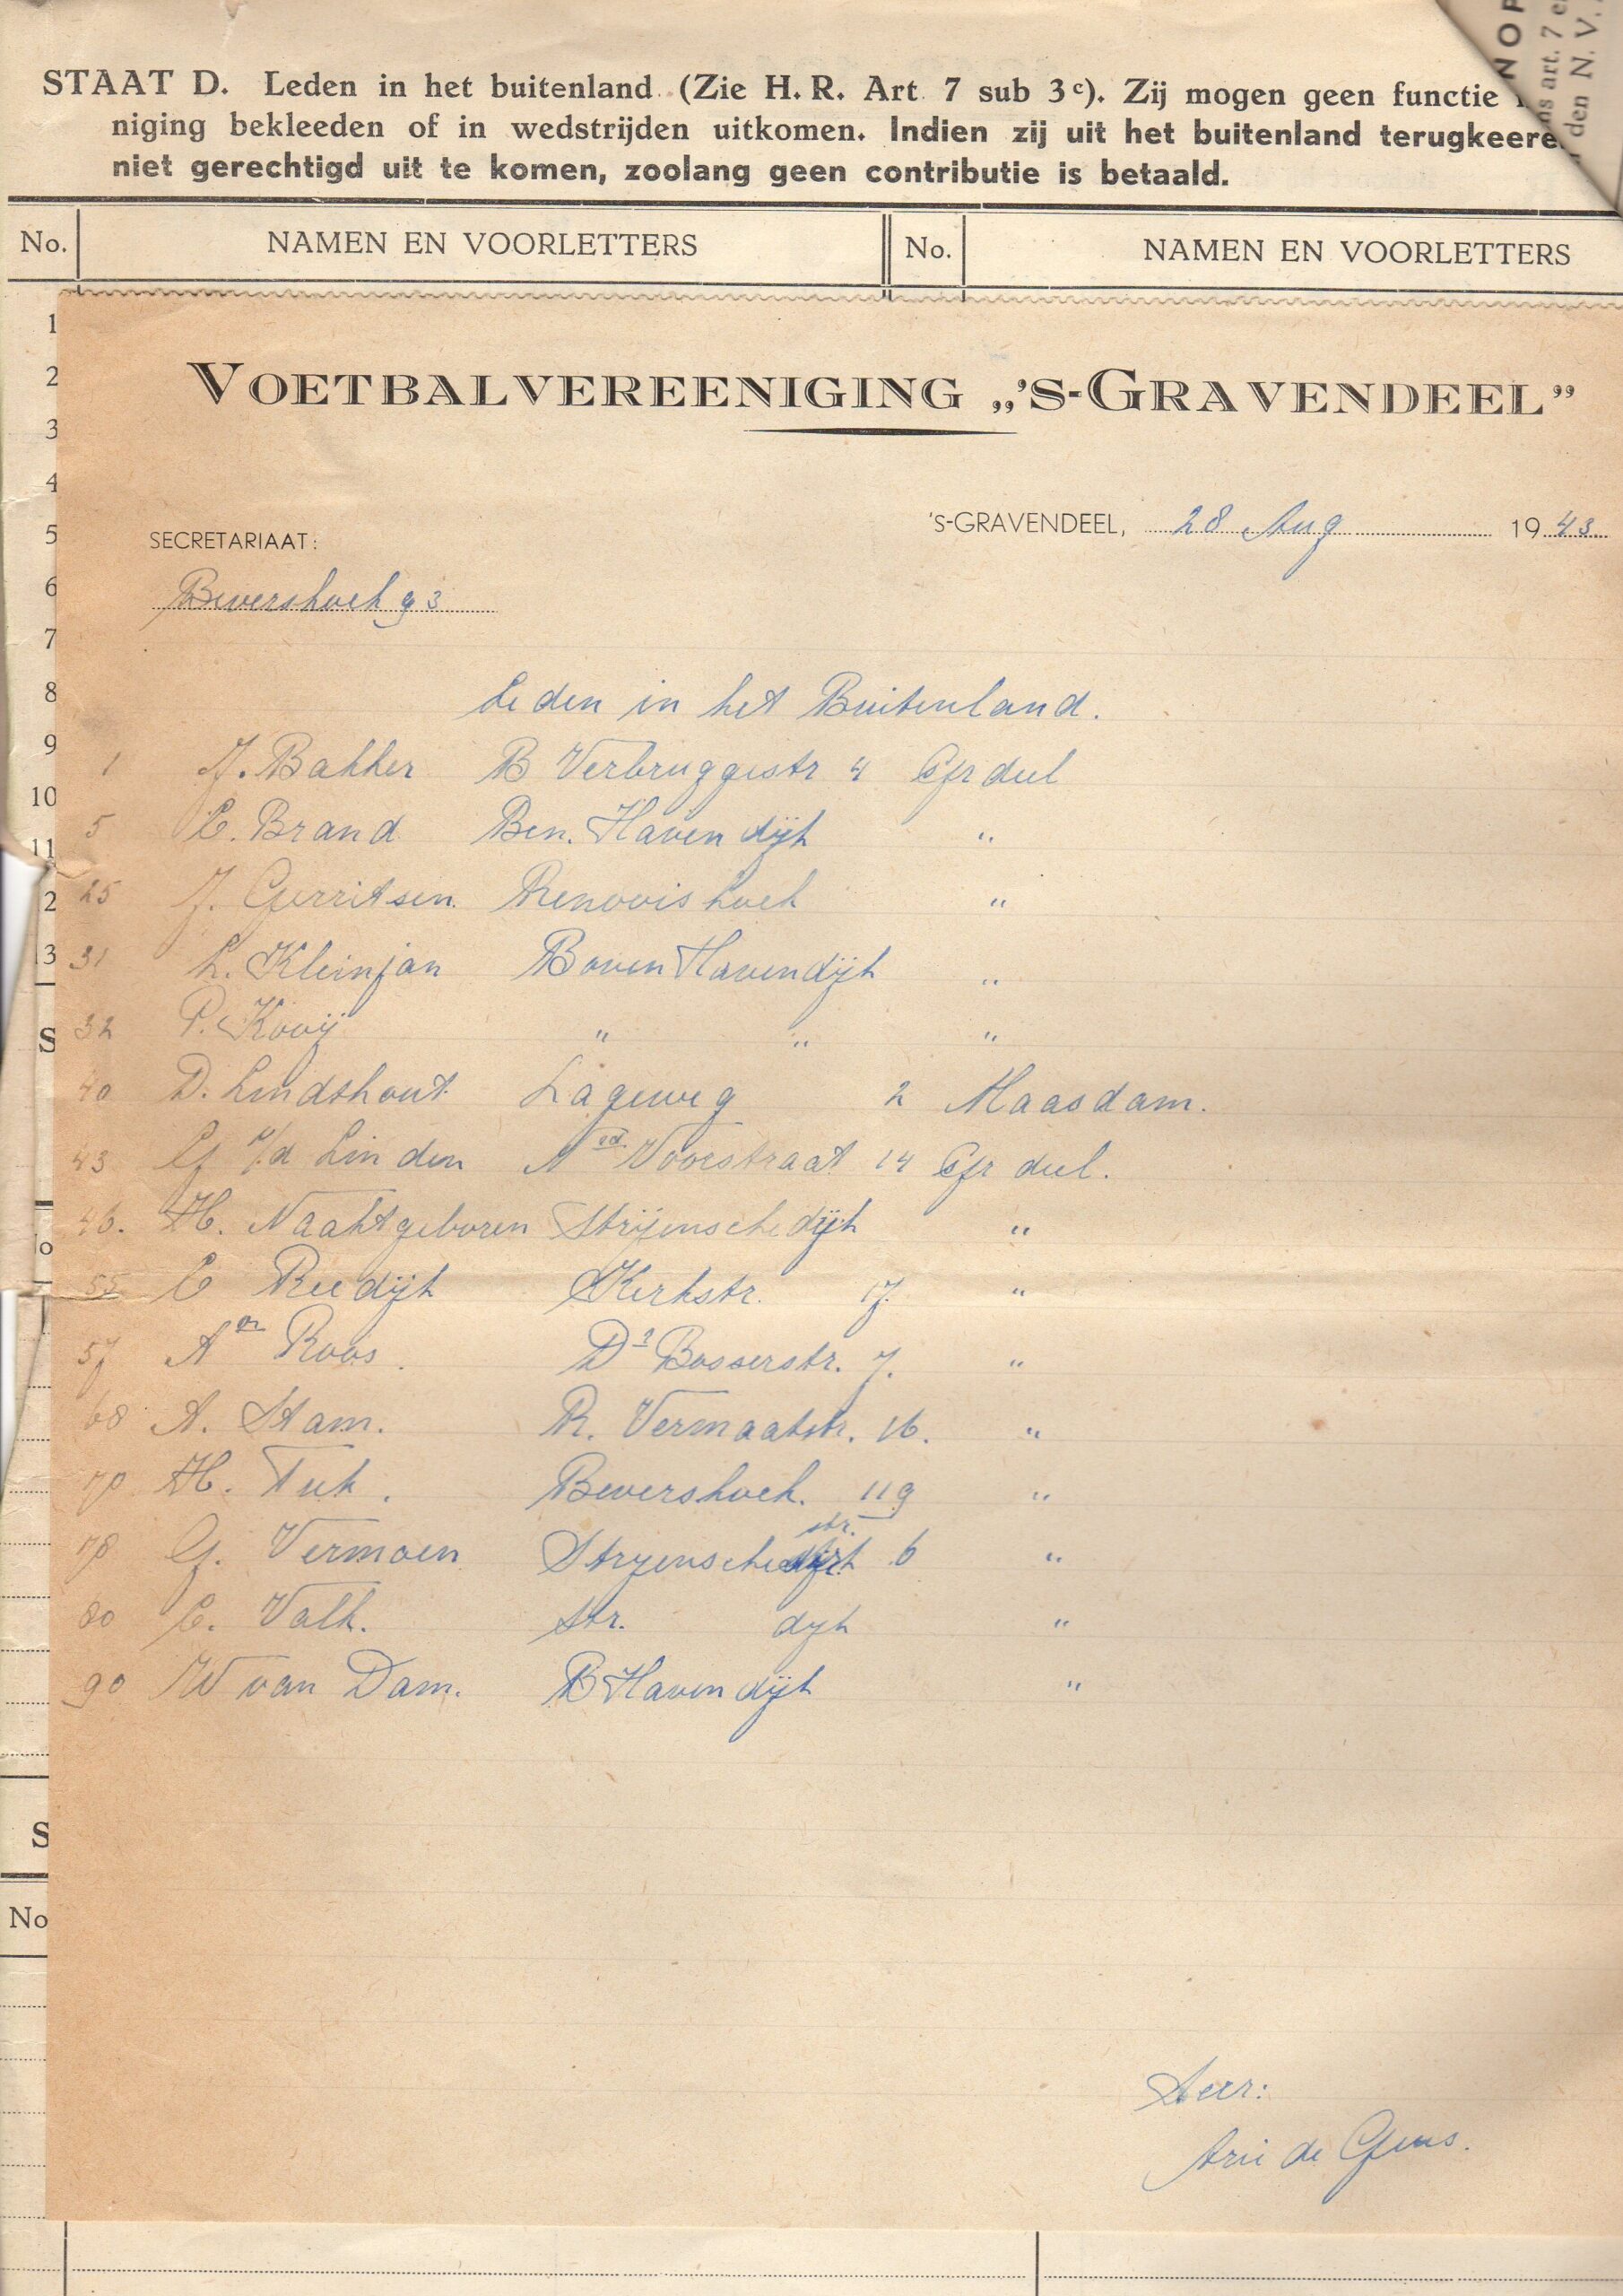 NOP
ns art. 7 e
den N. V.
STAAT D. Leden in het buitenland. (Zie H. R. Art. 7 sub 3c). Zij mogen geen functie
niging bekleeden of in wedstrijden uitkomen. Indien zij uit het buitenland terugkeere
niet gerechtigd uit te komen, zoolang geen contributie is betaald.
No. NAMEN EN VOORLETTERS No. NAMEN EN VOORLETTERS
1
2
3
4
5
6
7
8
9
10
11
2
13
S
o
S
No
VOETBALVEREENIGING „'S-GRAVENDEEL”
'S-GRAVENDEEL, 28 Aug 1943
SECRETARIAAT:
Bevershoek g 3
Leden in het Buitenland.
1 J. Bakker B Verbruggestr 4 Gr deel
5 C. Brand Ben. Havendijk "
25 J. Gerritsen. Renooishoek "
31 L. Kleinjan Boven Havendijk "
32 P. Kooij " " "
40 D. Lindshout. Lageweg 2 Maasdam.
43 G v/d Linden Nd Voorstraat 14 Gr deel.
46. H. Naaktgeboren Strijenschedijk "
55 C Reedijk Kerkstr. 17. "
57 Am Roos. Ds Bosserstr. 7. "
68 A. Stam. R. Vermaatstr. 16. "
70 H. Tuk. Bevershoek. 119 "
78 G. Vermoen Stryensche str. 6 "
80 C. Valk. Str. dyk "
90 W van Dam. B Havendijk "
Secr:
Arie de Geus.